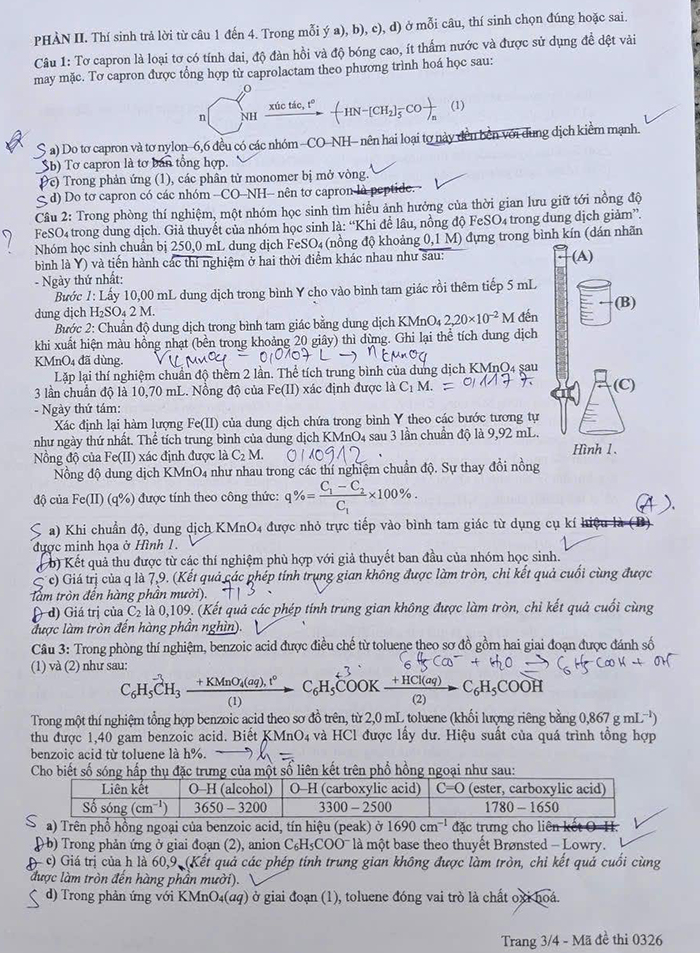 PHẦN II. Thí sinh trả lời từ câu 1 đến 4. Trong mỗi ý a), b), c), d) ở mỗi câu, thí sinh chọn đúng hoặc sai.
Câu 1: Tơ capron là loại tơ có tính dai, độ đàn hồi và độ bóng cao, ít thấm nước và được sử dụng để dệt vải
may mặc. Tơ capron được tổng hợp từ caprolactam theo phương trình hoá học sau:
O
n NH xúc tác, t° (HN–[CH₂]₅–CO)ₙ (1)
S a) Do tơ capron và tơ nylon–6,6 đều có các nhóm –CO–NH– nên hai loại tơ này đều bền với dung dịch kiềm mạnh.
S b) Tơ capron là tơ bán tổng hợp.
Đ c) Trong phản ứng (1), các phân tử monomer bị mở vòng.
S d) Do tơ capron có các nhóm –CO–NH– nên tơ capron là peptide.
Câu 2: Trong phòng thí nghiệm, một nhóm học sinh tìm hiểu ảnh hưởng của thời gian lưu giữ tới nồng độ
? FeSO₄ trong dung dịch. Giả thuyết của nhóm học sinh là: “Khi để lâu, nồng độ FeSO₄ trong dung dịch giảm”.
Nhóm học sinh chuẩn bị 250,0 mL dung dịch FeSO₄ (nồng độ khoảng 0,1 M) đựng trong bình kín (dán nhãn
bình là Y) và tiến hành các thí nghiệm ở hai thời điểm khác nhau như sau:
- Ngày thứ nhất:
Bước 1: Lấy 10,00 mL dung dịch trong bình Y cho vào bình tam giác rồi thêm tiếp 5 mL
dung dịch H₂SO₄ 2 M.
Bước 2: Chuẩn độ dung dịch trong bình tam giác bằng dung dịch KMnO₄ 2,20×10⁻² M đến
khi xuất hiện màu hồng nhạt (bền trong khoảng 20 giây) thì dừng. Ghi lại thể tích dung dịch
KMnO₄ đã dùng. VKMnO₄ = 0,0107 L → nKMnO₄
Lặp lại thí nghiệm chuẩn độ thêm 2 lần. Thể tích trung bình của dung dịch KMnO₄ sau
3 lần chuẩn độ là 10,70 mL. Nồng độ của Fe(II) xác định được là C₁ M. = 0,1177.
- Ngày thứ tám:
Xác định lại hàm lượng Fe(II) của dung dịch chứa trong bình Y theo các bước tương tự
như ngày thứ nhất. Thể tích trung bình của dung dịch KMnO₄ sau 3 lần chuẩn độ là 9,92 mL.
Nồng độ của Fe(II) xác định được là C₂ M. 0,10912.
(A)
(B)
(C)
Hình 1.
Nồng độ dung dịch KMnO₄ như nhau trong các thí nghiệm chuẩn độ. Sự thay đổi nồng
độ của Fe(II) (q%) được tính theo công thức: q% = (C₁ − C₂)/C₁ ×100%.
(A).
S a) Khi chuẩn độ, dung dịch KMnO₄ được nhỏ trực tiếp vào bình tam giác từ dụng cụ kí hiệu là (B)
được minh họa ở Hình 1.
Đ b) Kết quả thu được từ các thí nghiệm phù hợp với giả thuyết ban đầu của nhóm học sinh.
S c) Giá trị của q là 7,9. (Kết quả các phép tính trung gian không được làm tròn, chỉ kết quả cuối cùng được
làm tròn đến hàng phần mười). 7,3.
Đ d) Giá trị của C₂ là 0,109. (Kết quả các phép tính trung gian không được làm tròn, chỉ kết quả cuối cùng
được làm tròn đến hàng phần nghìn).
Câu 3: Trong phòng thí nghiệm, benzoic acid được điều chế từ toluene theo sơ đồ gồm hai giai đoạn được đánh số
(1) và (2) như sau: C₆H₅COO⁻ + H₂O → C₆H₅COOH + OH⁻
-3 +3
C₆H₅CH₃ + KMnO₄(aq), t° (1) C₆H₅COOK + HCl(aq) (2) C₆H₅COOH
Trong một thí nghiệm tổng hợp benzoic acid theo sơ đồ trên, từ 2,0 mL toluene (khối lượng riêng bằng 0,867 g mL⁻¹)
thu được 1,40 gam benzoic acid. Biết KMnO₄ và HCl được lấy dư. Hiệu suất của quá trình tổng hợp
benzoic acid từ toluene là h%. → h =
Cho biết số sóng hấp thụ đặc trưng của một số liên kết trên phổ hồng ngoại như sau:
Liên kết O–H (alcohol) O–H (carboxylic acid) C=O (ester, carboxylic acid)
Số sóng (cm⁻¹) 3650 – 3200 3300 – 2500 1780 – 1650
S a) Trên phổ hồng ngoại của benzoic acid, tín hiệu (peak) ở 1690 cm⁻¹ đặc trưng cho liên kết O–H.
Đ b) Trong phản ứng ở giai đoạn (2), anion C₆H₅COO⁻ là một base theo thuyết Brønsted – Lowry.
Đ c) Giá trị của h là 60,9. (Kết quả các phép tính trung gian không được làm tròn, chỉ kết quả cuối cùng
được làm tròn đến hàng phần mười).
S d) Trong phản ứng với KMnO₄(aq) ở giai đoạn (1), toluene đóng vai trò là chất oxi hoá.
Trang 3/4 - Mã đề thi 0326